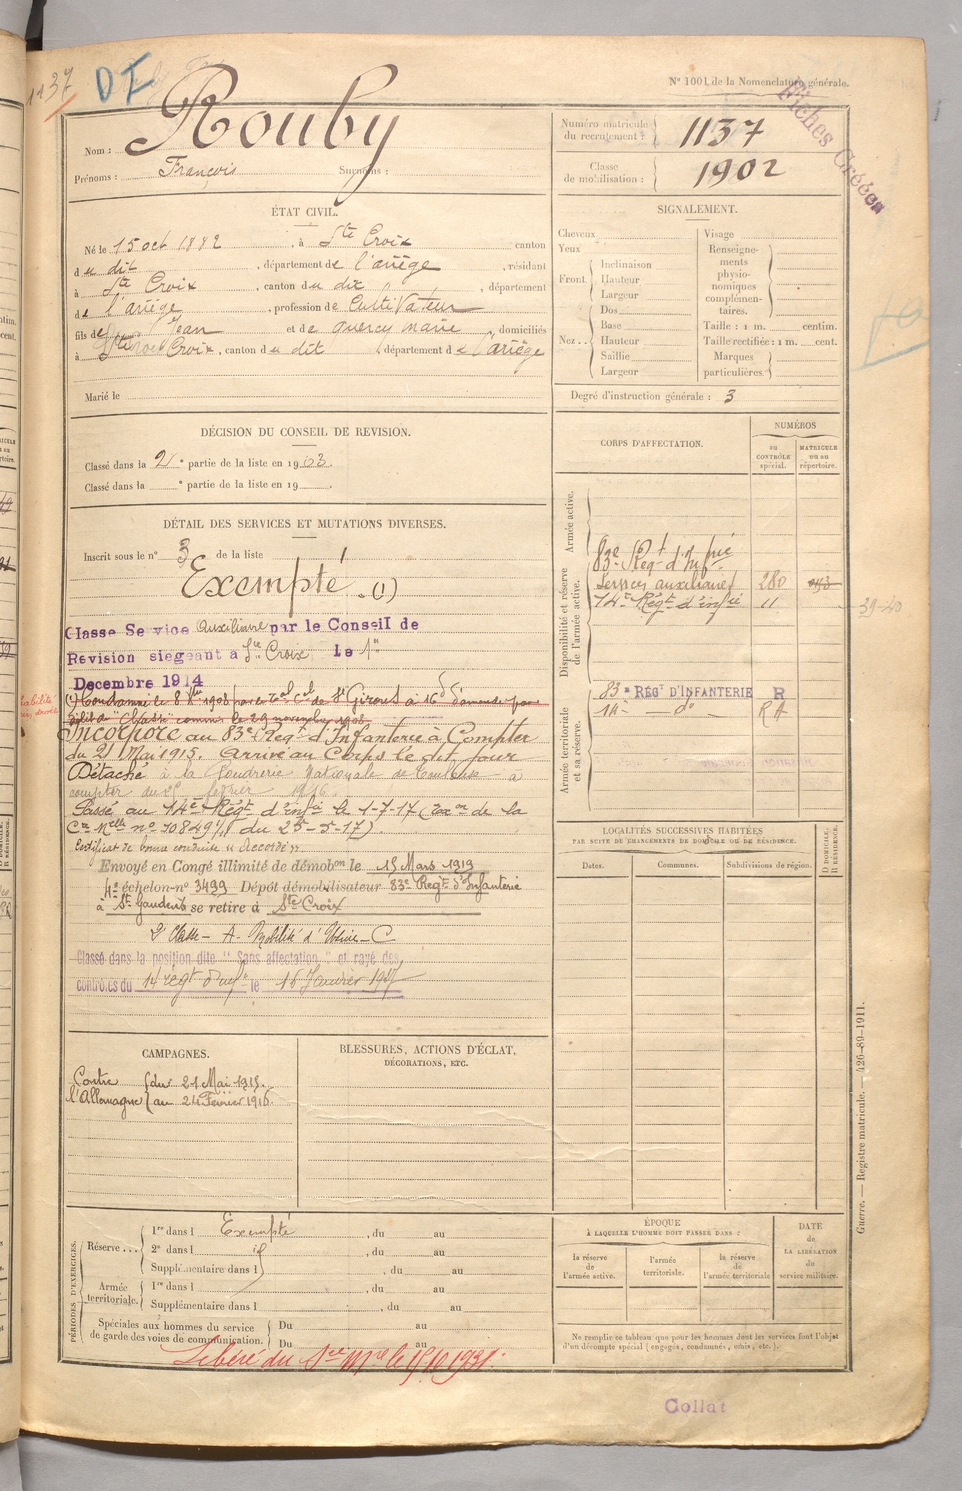 1137
DF
N° 1001 de la Nomenclature générale.
Fiches Créées
Nom : Rouby
Prénoms : François Surnoms :
Numéro matricule du recrutement : 1137
Classe de mobilisation : 1902
ÉTAT CIVIL.
Né le 15 oct 1882, à Ste Croix canton
du dit, département de l'ariège, résidant
à Ste Croix, canton du dit, département
de l'ariège, profession de Cultivateur
fils de Jean et de quercy marie, domiciliés
à Ste Croix, canton du dit, département de l'ariège
Marié le
SIGNALEMENT.
Cheveux
Yeux
Front.
Inclinaison
Hauteur
Largeur
Nez..
Dos
Base
Hauteur
Saillie
Largeur
Visage
Renseigne-
ments
physio-
nomiques
complémen-
taires.
Taille : 1 m. centim.
Taille rectifiée : 1 m. cent.
Marques
particulières.
Degré d'instruction générale : 3
DÉCISION DU CONSEIL DE REVISION.
Classé dans la 2e partie de la liste en 1903.
Classé dans la e partie de la liste en 19
DÉTAIL DES SERVICES ET MUTATIONS DIVERSES.
Inscrit sous le n° 3 de la liste
Exempté (1)
Classé Service auxiliaire par le Conseil de
Révision siégeant à Ste Croix Le 1er
Decembre 1914
(1) Condamné le 8 1908 par le de St Girons à 16 d'amende pour
délit de "Chasse" commis le 29 novembre 1908
Incorporé au 83e Régt d'Infanterie à Compter
du 21 Mai 1915. Arrivé au Corps le dit jour
Détaché à la Poudrerie Nationale de Toulouse à
compter du février 1916.
Passé au 14e Régt d'infie le 1-7-17 (on de la
Cre Melle n° du 25-5-17).
Certificat de bonne conduite "Accordé".
Envoyé en Congé illimité de démobon le 15 Mars 1919
4e échelon n° 3499 Dépôt démobilisateur 83e Régt d'Infanterie
à St Gaudens se retire à Ste Croix
Classé dans la position dite "Sans affectation" et rayé des
contrôles du 14 régt d'infie le 16 Janvier
CORPS D'AFFECTATION.
NUMÉROS
au
CONTRÔLE
spécial.
MATRICULE
ou au
répertoire.
Armée active.
Disponibilité et réserve
de l'armée active.
83e Régt d'Infrie
Services auxiliaires 280
14e Régt d'infie "
39-40
Armée territoriale
et sa réserve.
83e RÉGT D'INFANTERIE R
14e do RA
LOCALITÉS SUCCESSIVES HABITÉES
PAR SUITE DE CHANGEMENTS DE DOMICILE OU DE RÉSIDENCE.
Dates.
Communes.
Subdivisions de région.
D DOMICILE.
R RÉSIDENCE.
CAMPAGNES.
Contre l'Allemagne
du 21 Mai 1915.
au 24 Février 1916.
BLESSURES, ACTIONS D'ÉCLAT,
DÉCORATIONS, ETC.
PÉRIODES D'EXERCICES.
Réserve...
1re dans l Exempté, du au
2e dans l, du au
Supplémentaire dans l, du au
Armée
territoriale.
1re dans l, du au
Supplémentaire dans l, du au
Spéciales aux hommes du service
de garde des voies de communication.
Du au
Du au
Libéré du Sce Mre le 15.10.1931.
ÉPOQUE
À LAQUELLE L'HOMME DOIT PASSER DANS :
la réserve
de
l'armée active.
l'armée
territoriale.
la réserve
de
l'armée territoriale
DATE
de
LA LIBÉRATION
du
service militaire.
Ne remplir ce tableau que pour les hommes dont les services font l'objet
d'un décompte spécial (engagés, condamnés, omis, etc.).
Guerre. — Registre matricule. — 426-89-1911.
Collat